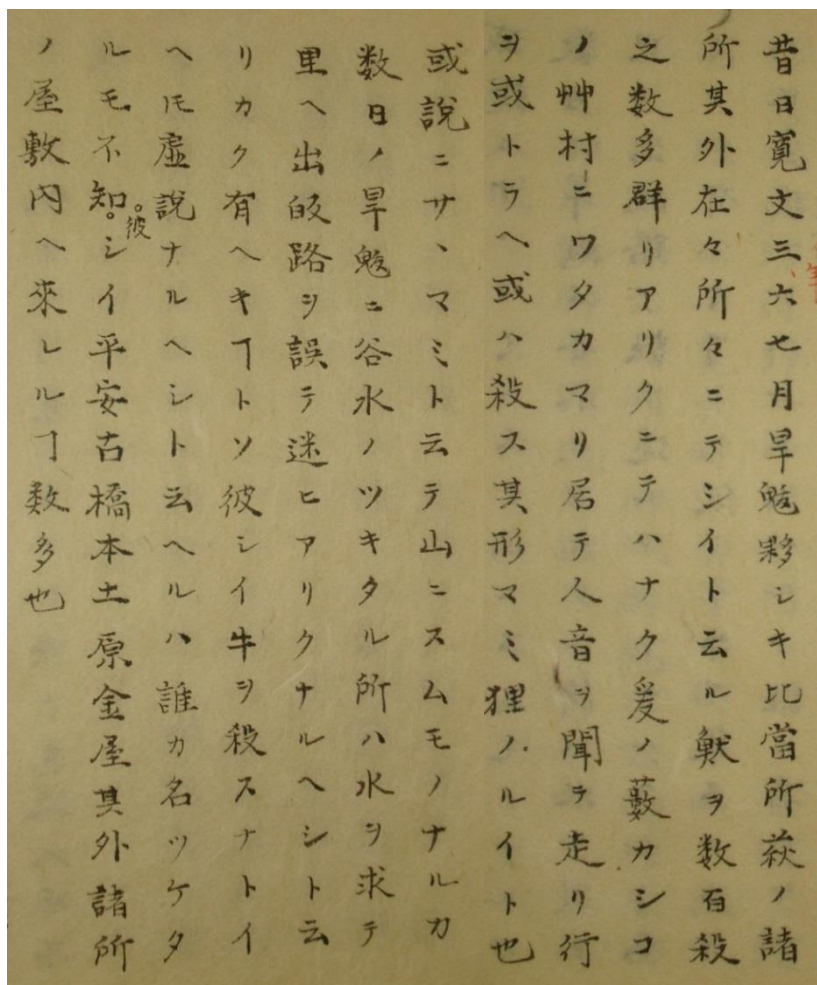 昔日寛文三六七月旱魃夥シキ比當所萩ノ諸
所其外在々所々ニテシイト云ル獣ヲ数百殺
之数多群リアリクニテハナク爰ノ藪カシコ
ノ艸村ニワタカマリ居テ人音ヲ聞テ走リ行
ヲ或トラヘ或ハ殺ス其形マミ狸ノルイト也
或說ニサヽマミト云テ山ニスムモノナルカ
数日ノ旱魃ニ谷水ノツキタル所ハ水ヲ求テ
里ヘ出皈路ヲ誤テ迷ヒアリクナルヘシト云
リカク有ヘキヿトソ彼シイ牛ヲ殺スナトイ
ヘ𪜈虚說ナルヘシト云ヘルハ誰カ名ツケタ
ルモ不知。彼シイ平安古橋本土原金屋其外諸所
ノ屋敷内ヘ來レルヿ数多也